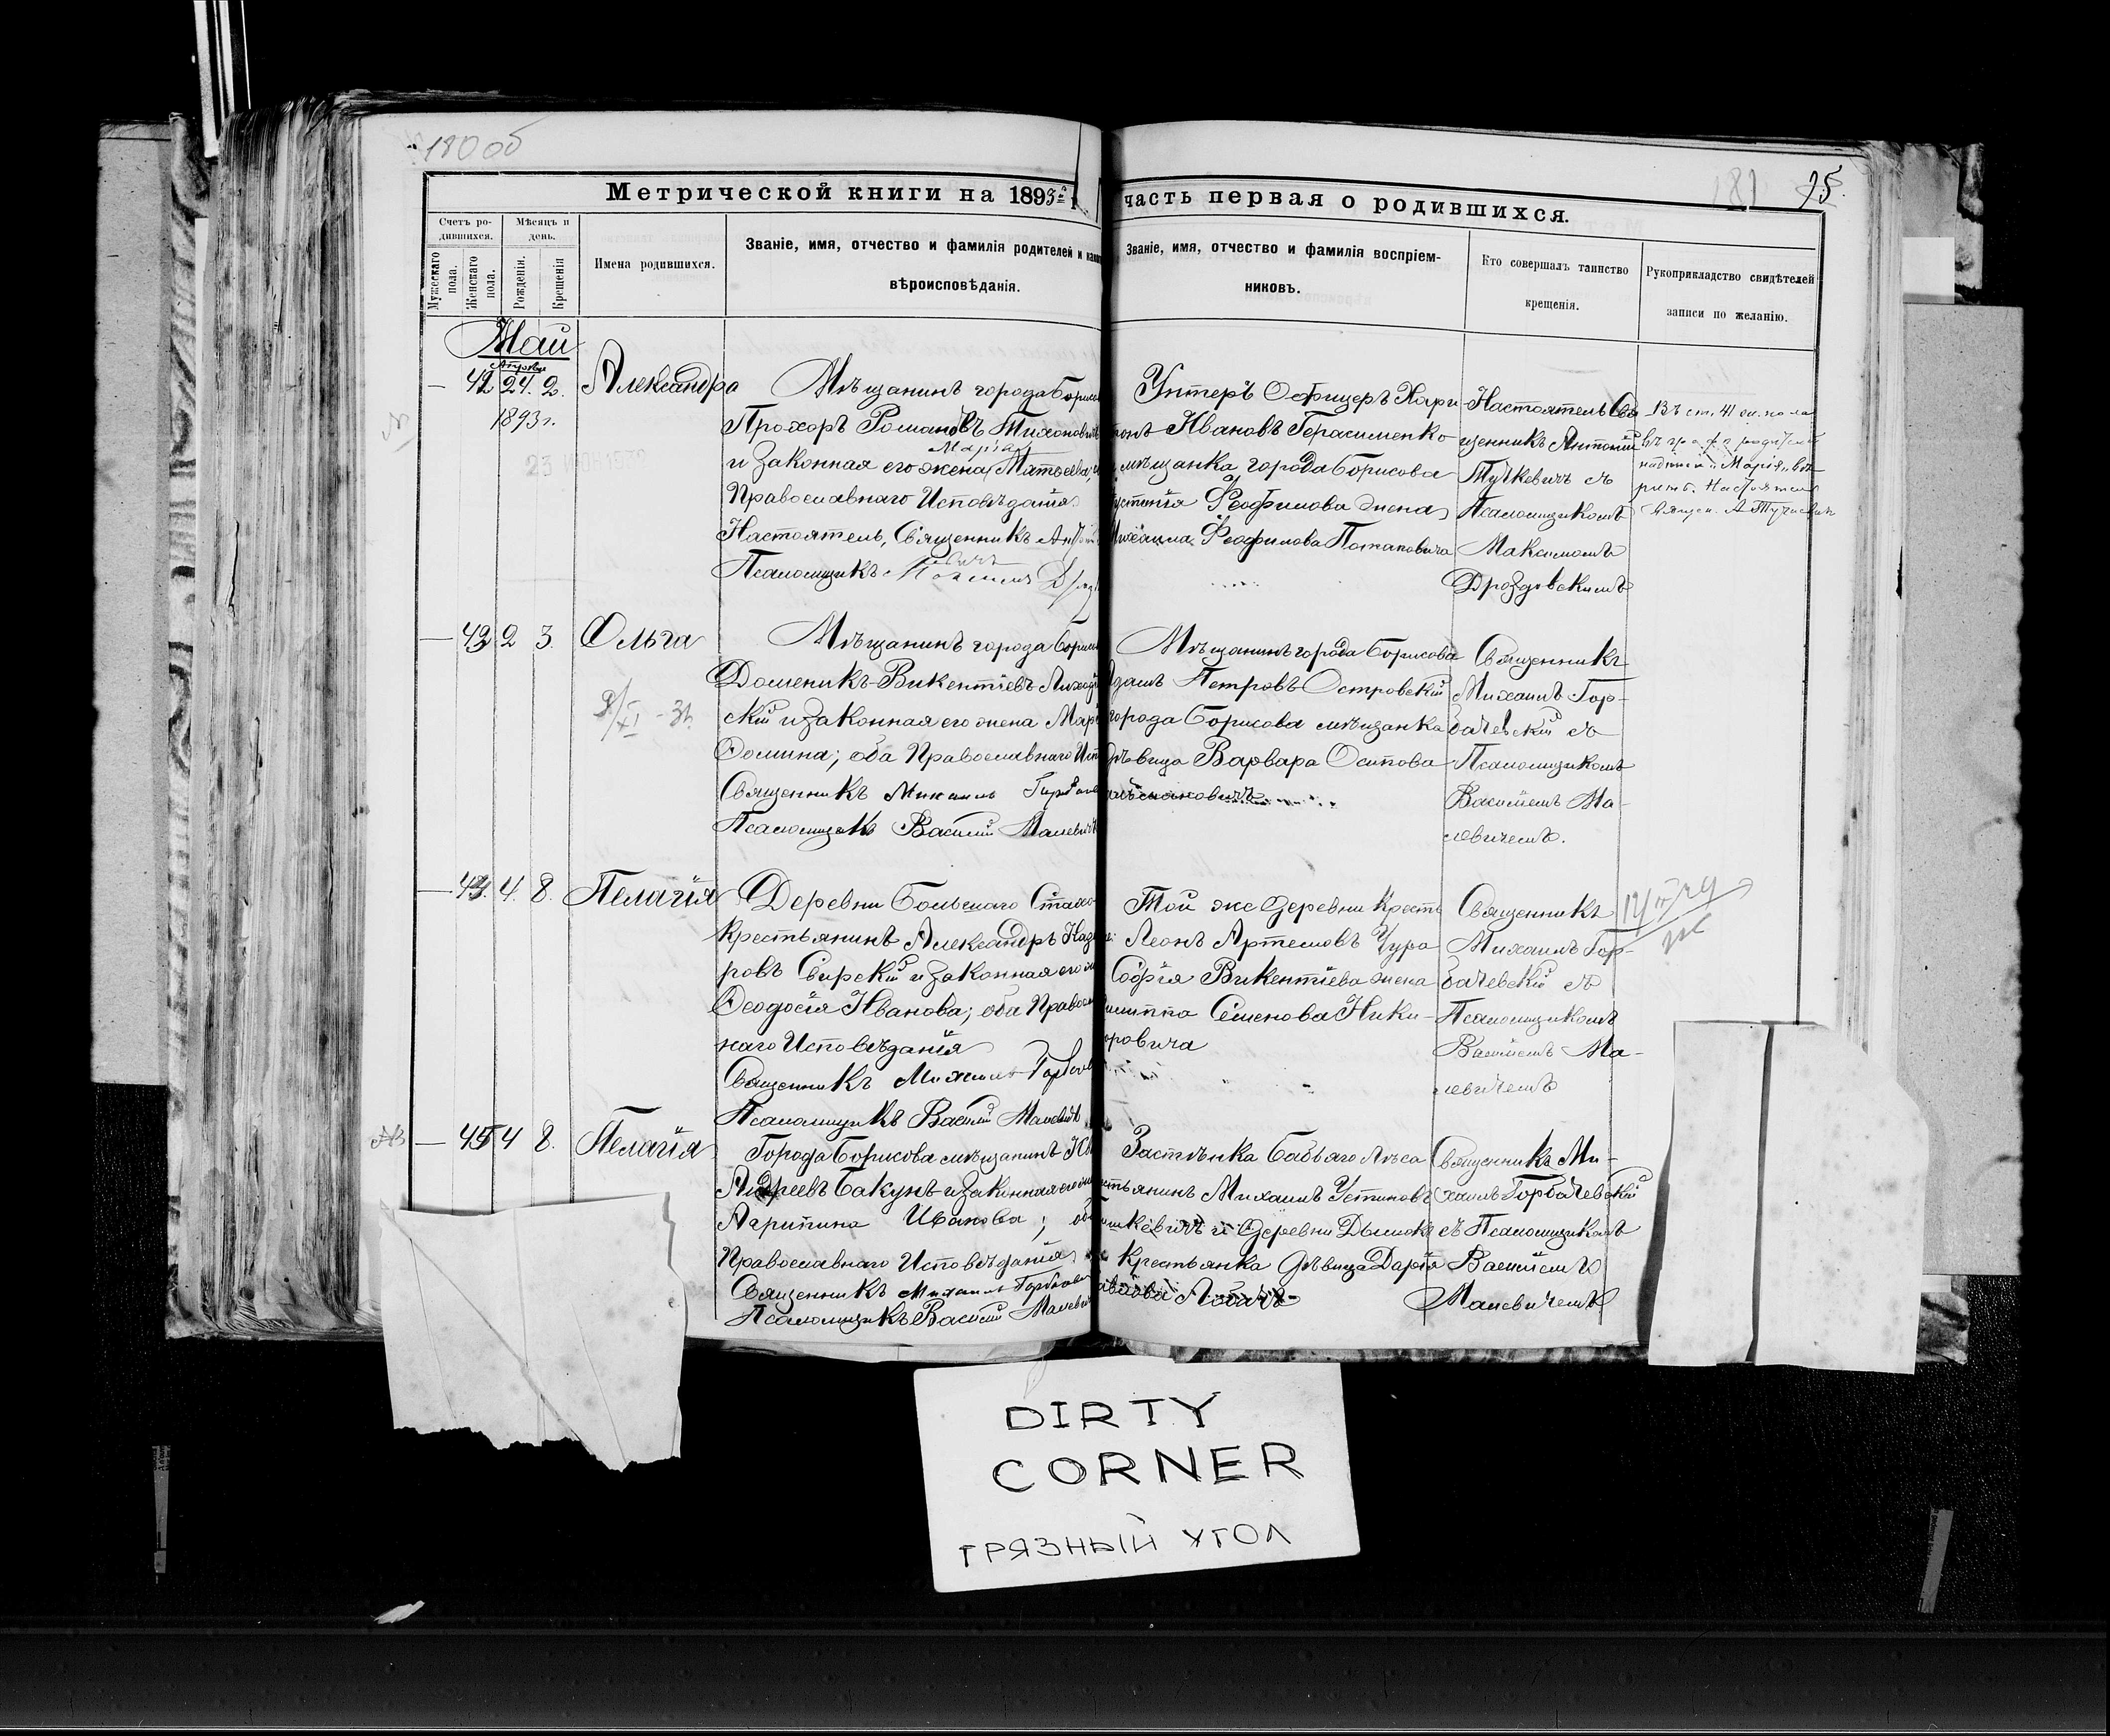 180 об
181
75.
Метрической книги на 1893й г
часть первая о родившихся.
Счетъ ро-
дившихся.
Мужескаго пола.
Женскаго пола.
Мѣсяцъ и
день.
Рожденія.
Крещенія
Имена родившихся.
Званіе, имя, отчество и фамилія родителей и како
вѣроисповѣданія.
Званіе, имя, отчество и фамилія воспріем-
никовъ.
Кто совершалъ таинство
крещенія.
Рукоприкладство свидѣтелей
записи по желанію.
Май
Апрѣля
— 42 24. 2.
1893 г.
Александра
Мѣщанинъ города Борисо
Прохоръ Романовъ Тихонович
Марія
и законная его жена Матѳеева,
Православнаго Исповѣданія
Настоятель, Священникъ Ант
Псаломщикъ
Унтеръ Офицеръ Хари-
тонъ Ивановъ Герасименко
мѣщанка города Борисова
Устинія Феофилова жена
Михаила Феофилова Потаповича
Настоятель Свя-
щенникъ Антоній
Тучкевичъ съ
Псаломщикомъ
Максимомъ
Дроздовскимъ
Въ ст. 41
въ графѣ родителей
надпись „Марія" вѣ-
рить. Настоятель
Священ. А Тучкевич
— 43 2 3.
Ольга
Мѣщанинъ города Борис
Доменикъ Викентіевъ
скій и законная его жена Мар
Ѳомина; оба Православнаго Исп
Священникъ Михаилъ Горбаче
Псаломщикъ Василій Малевичъ
Мѣщанинъ города Борисова
Адамъ Петровъ Островскій
города Борисова мѣщанка
дѣвица Варвара Осипова
Священникъ
Михаилъ Гор-
бачевскій съ
Псаломщикомъ
Василіемъ Ма-
левичемъ.
— 44. 4. 8.
Пелагія
Деревни Большаго Стахо
крестьянинъ Александръ Наза
ровъ Свирскій и законная его ж
Ѳеодосія Иванова; оба Правосл
наго Исповѣданія
Священникъ Михаилъ Горбач
Псаломщикъ Василій Малевичъ
Той же деревни Крест
Леонъ Артемовъ Чура
Софія Викентіева жена
Филиппа Семенова Ники-
форовича
Священникъ
Михаилъ Гор-
бачевскій съ
Псаломщикомъ
Василіемъ Ма-
левичемъ
— 45 4 8.
Пелагія
Города Борисова мѣщанинъ
Андреевъ Бакунъ и законная его ж
Агрипина Иванова; об
Православнаго Исповѣданія
Священникъ Михаилъ Горбачев
Псаломщикъ Василій Малевич
Застѣнка Бабьяго Лѣса
стьянинъ Михаилъ Устиновъ
и деревни Дымки
Крестьянка дѣвица Дарія
Лобачъ
Священникъ Ми-
хаилъ Горбачевскій
съ Псаломщикомъ
Василіемъ
Малевичемъ
DIRTY
CORNER
ГРЯЗНЫЙ УГОЛ